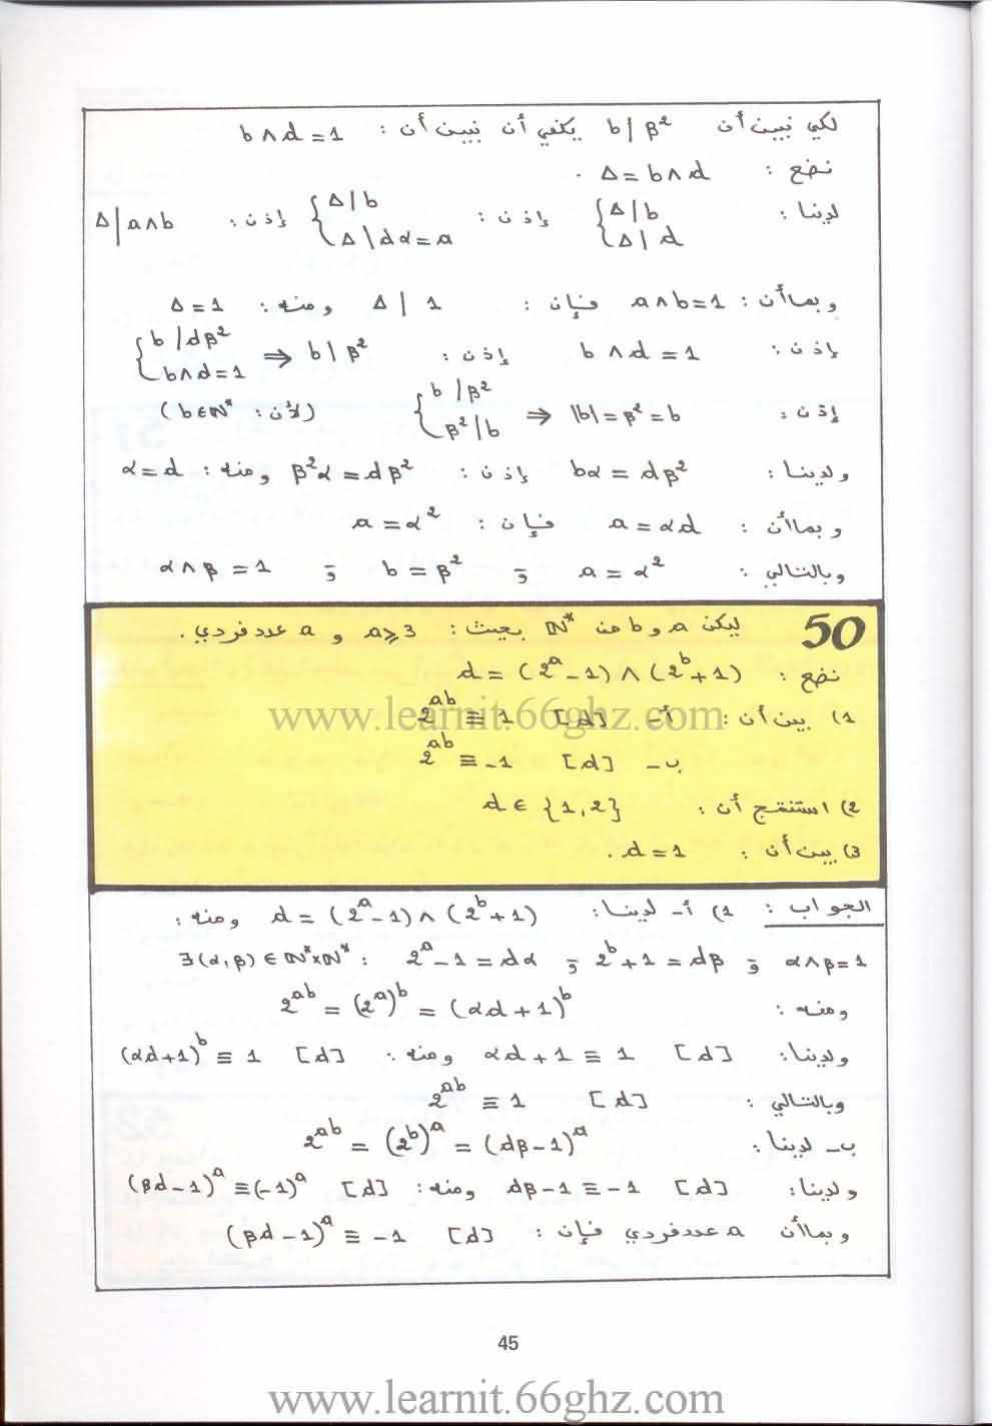 لكي نبين أن b | β² يكفي أن نبين أن : b ∧ d = 1
نضع : Δ = b ∧ d .
لدينا : { Δ | b ; Δ | d إذن : { Δ | b ; Δ | dα = a إذن : Δ | a ∧ b
وبما أن : a ∧ b = 1 فإن : Δ | 1 ومنه : Δ = 1
إذن : b ∧ d = 1 إذن : { b | dβ² ; b ∧ d = 1 ⇒ b | β²
إذن : { b | β² ; β² | b ⇒ |b| = β² = b (لأن : b ∈ ℕ*)
ولدينا : bα = dβ² إذن : β²α = dβ² ومنه : α = d
وبما أن : a = αd فإن : a = α²
وبالتالي : a = α² و b = β² و α ∧ β = 1
50 ليكن a و b من ℕ* بحيث : a ⩾ 3 و a عدد فردي .
نضع : d = (2^a - 1) ∧ (2^b + 1)
1) بين أن : أ- 2^ab ≡ 1 [d]
ب- 2^ab ≡ -1 [d]
2) استنتج أن : d ∈ {1,2}
3) بين أن : d = 1 .
www.learnit.66ghz.com
الجواب : 1) أ- لدينا : d = (2^a - 1) ∧ (2^b + 1) ومنه :
∃(α,β) ∈ ℕ*×ℕ* : 2^a - 1 = dα و 2^b + 1 = dβ و α ∧ β = 1
ومنه : 2^ab = (2^a)^b = (αd + 1)^b
ولدينا : αd + 1 ≡ 1 [d] ومنه : (αd + 1)^b ≡ 1 [d]
وبالتالي : 2^ab ≡ 1 [d]
ب- لدينا : 2^ab = (2^b)^a = (dβ - 1)^a
ولدينا : dβ - 1 ≡ -1 [d] ومنه : (βd - 1)^a ≡ (-1)^a [d]
وبما أن a عدد فردي فإن : (βd - 1)^a ≡ -1 [d]
45
www.learnit.66ghz.com